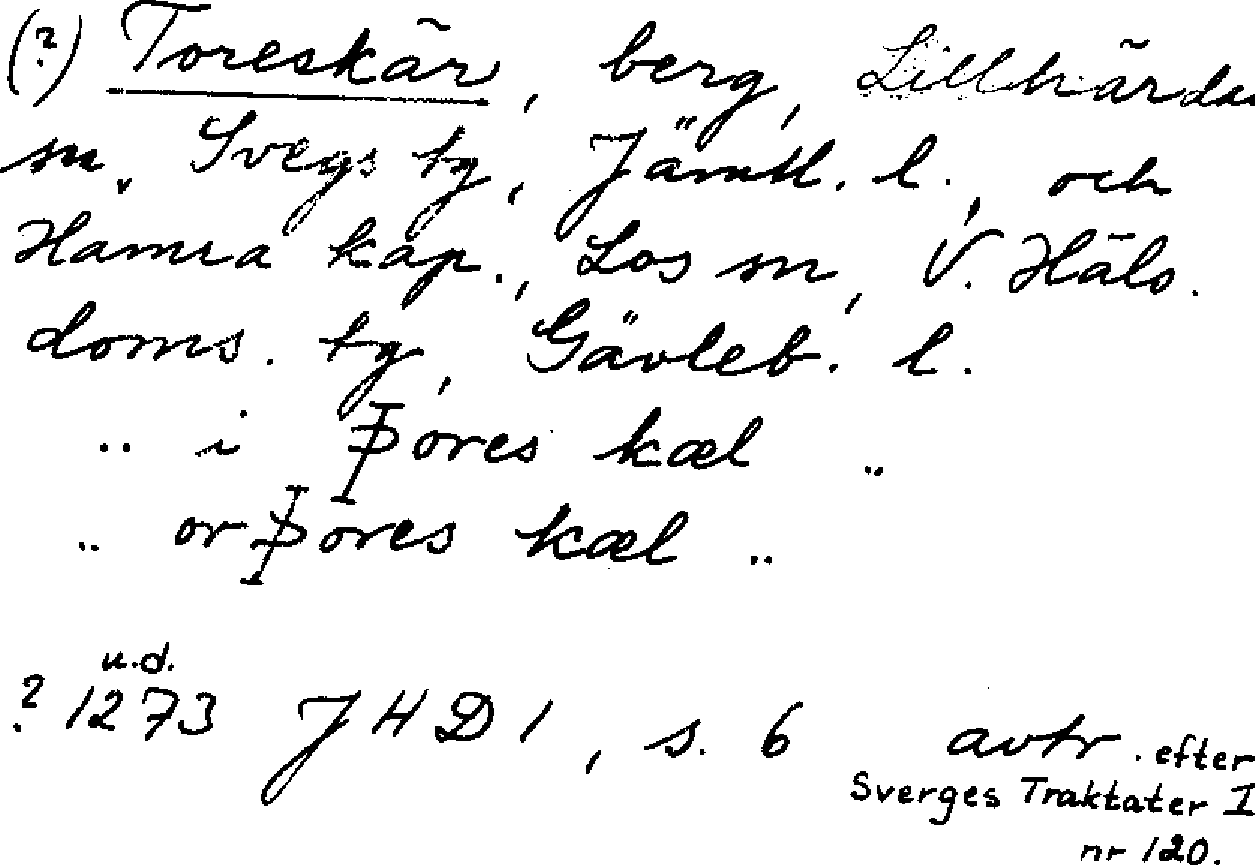 (?) Toreskär, berg, Lillhärdals
sn, Svegs tg, Jämtl. l., och
Hamra kap., Los sn, V. Häls.
doms. tg, Gävleb. l.
.. i Þores kæl ..
.. or Þores kæl ..
u.d.
? 1273 JHD 1, s. 6 avtr. efter
Sverges Traktater I
nr 120.